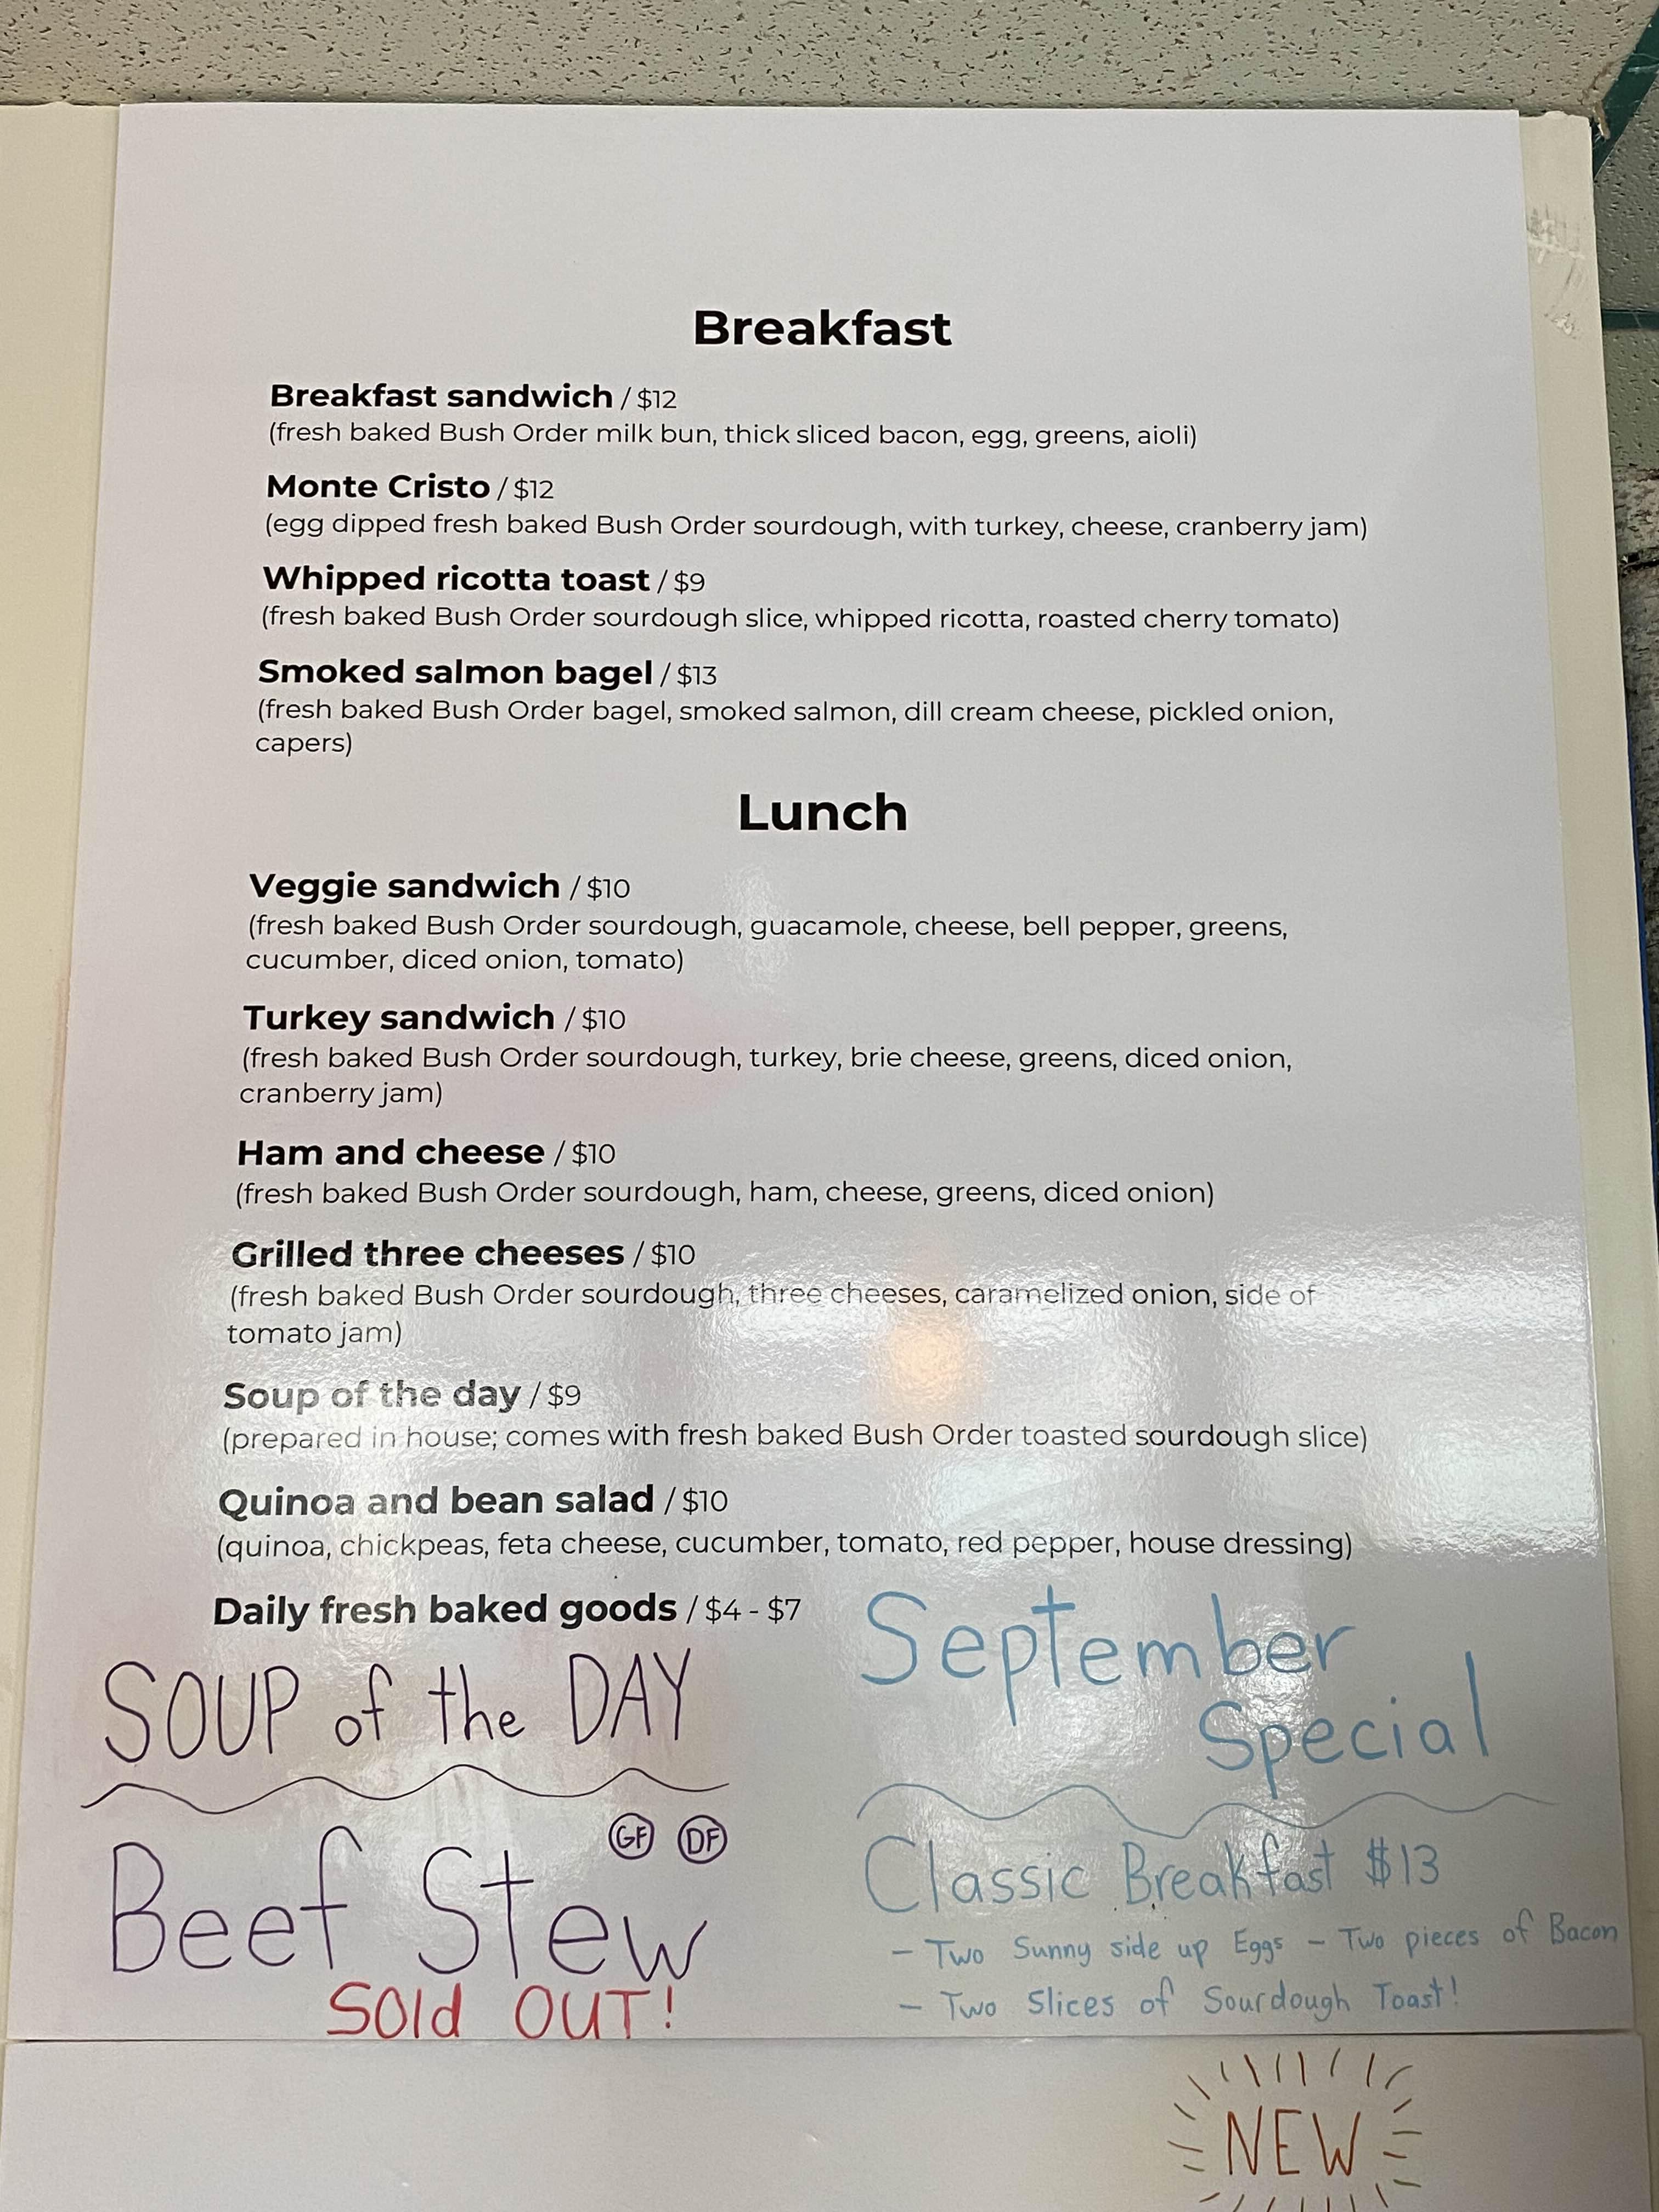 Breakfast
Breakfast sandwich / $12
(fresh baked Bush Order milk bun, thick sliced bacon, egg, greens, aioli)
Monte Cristo / $12
(egg dipped fresh baked Bush Order sourdough, with turkey, cheese, cranberry jam)
Whipped ricotta toast / $9
(fresh baked Bush Order sourdough slice, whipped ricotta, roasted cherry tomato)
Smoked salmon bagel / $13
(fresh baked Bush Order bagel, smoked salmon, dill cream cheese, pickled onion,
capers)
Lunch
Veggie sandwich / $10
(fresh baked Bush Order sourdough, guacamole, cheese, bell pepper, greens,
cucumber, diced onion, tomato)
Turkey sandwich / $10
(fresh baked Bush Order sourdough, turkey, brie cheese, greens, diced onion,
cranberry jam)
Ham and cheese / $10
(fresh baked Bush Order sourdough, ham, cheese, greens, diced onion)
Grilled three cheeses / $10
(fresh baked Bush Order sourdough, three cheeses, caramelized onion, side of
tomato jam)
Soup of the day / $9
(prepared in house; comes with fresh baked Bush Order toasted sourdough slice)
Quinoa and bean salad / $10
(quinoa, chickpeas, feta cheese, cucumber, tomato, red pepper, house dressing)
Daily fresh baked goods / $4 - $7
SOUP of the DAY
GF DF
Beef Stew
SOld OUT!
September
Special
Classic Breakfast $13
- Two Sunny side up Eggs - Two pieces of Bacon
- Two Slices of Sourdough Toast!
NEW